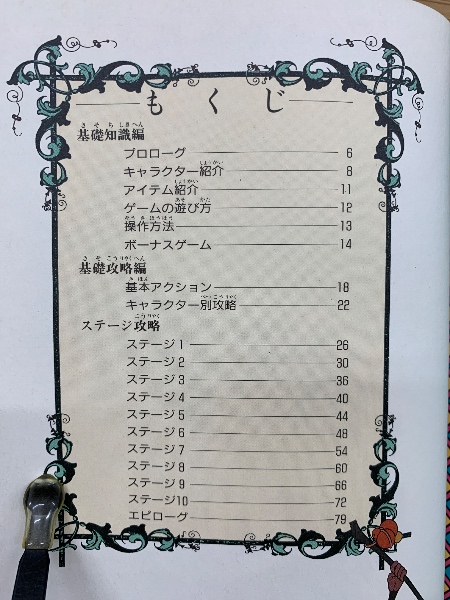 もくじ
基礎知識編
プロローグ 6
キャラクター紹介 8
アイテム紹介 11
ゲームの遊び方 12
操作方法 13
ボーナスゲーム 14
基礎攻略編
基本アクション 18
キャラクター別攻略 22
ステージ攻略
ステージ1 26
ステージ2 30
ステージ3 36
ステージ4 40
ステージ5 44
ステージ6 48
ステージ7 54
ステージ8 60
ステージ9 66
ステージ10 72
エピローグ 79